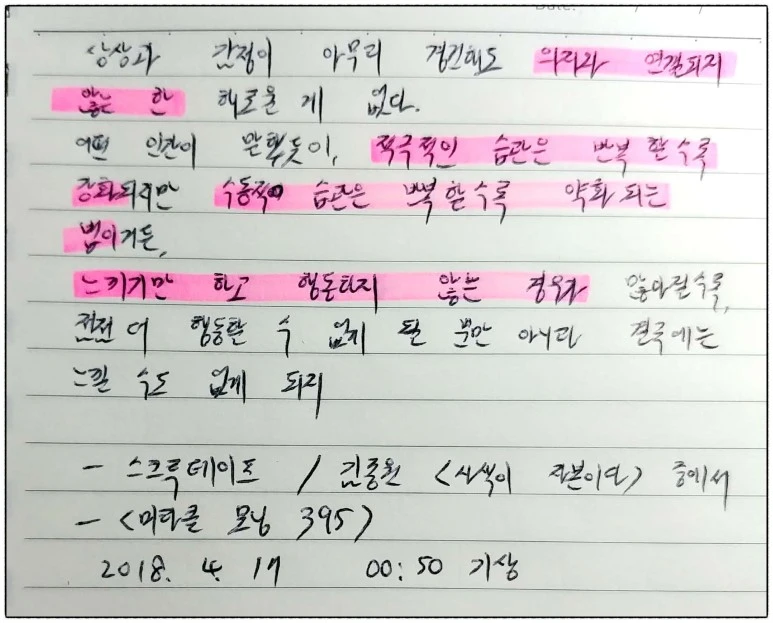 Date:
상상과 감정이 아무리 경건해도 의지와 연결되지
않는 한 해로울 게 없다.
어떤 인간이 말했듯이, 적극적인 습관은 반복 할수록
강화되지만 수동적 습관은 반복 할수록 약화 되는
법이거든,
느끼기만 하고 행동하지 않는 경우가 많아질수록,
점점 더 행동할 수 없게 될 뿐만 아니라 결국에는
느낄 수도 없게 되지
- 스크루테이프 / 김종원 <사색이 자본이다> 중에서
- <미라클 모닝 395>
2018. 4. 17 00:50 기상